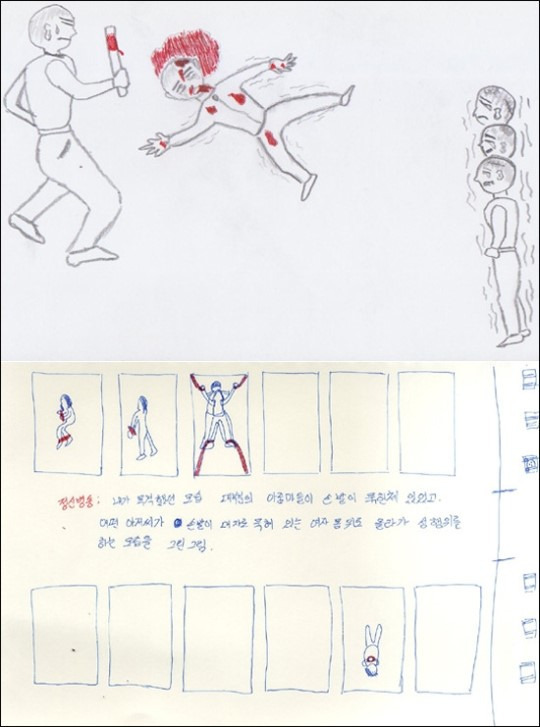 정신병동: 내가 목격했던 모습 대개의 아줌마들이 손발이 묶힌채 있었고.
어떤 아저씨가 손발이 大자로 묶혀 있는 여자 몸위로 올라가 성행위를
하는 모습을 그린그림.